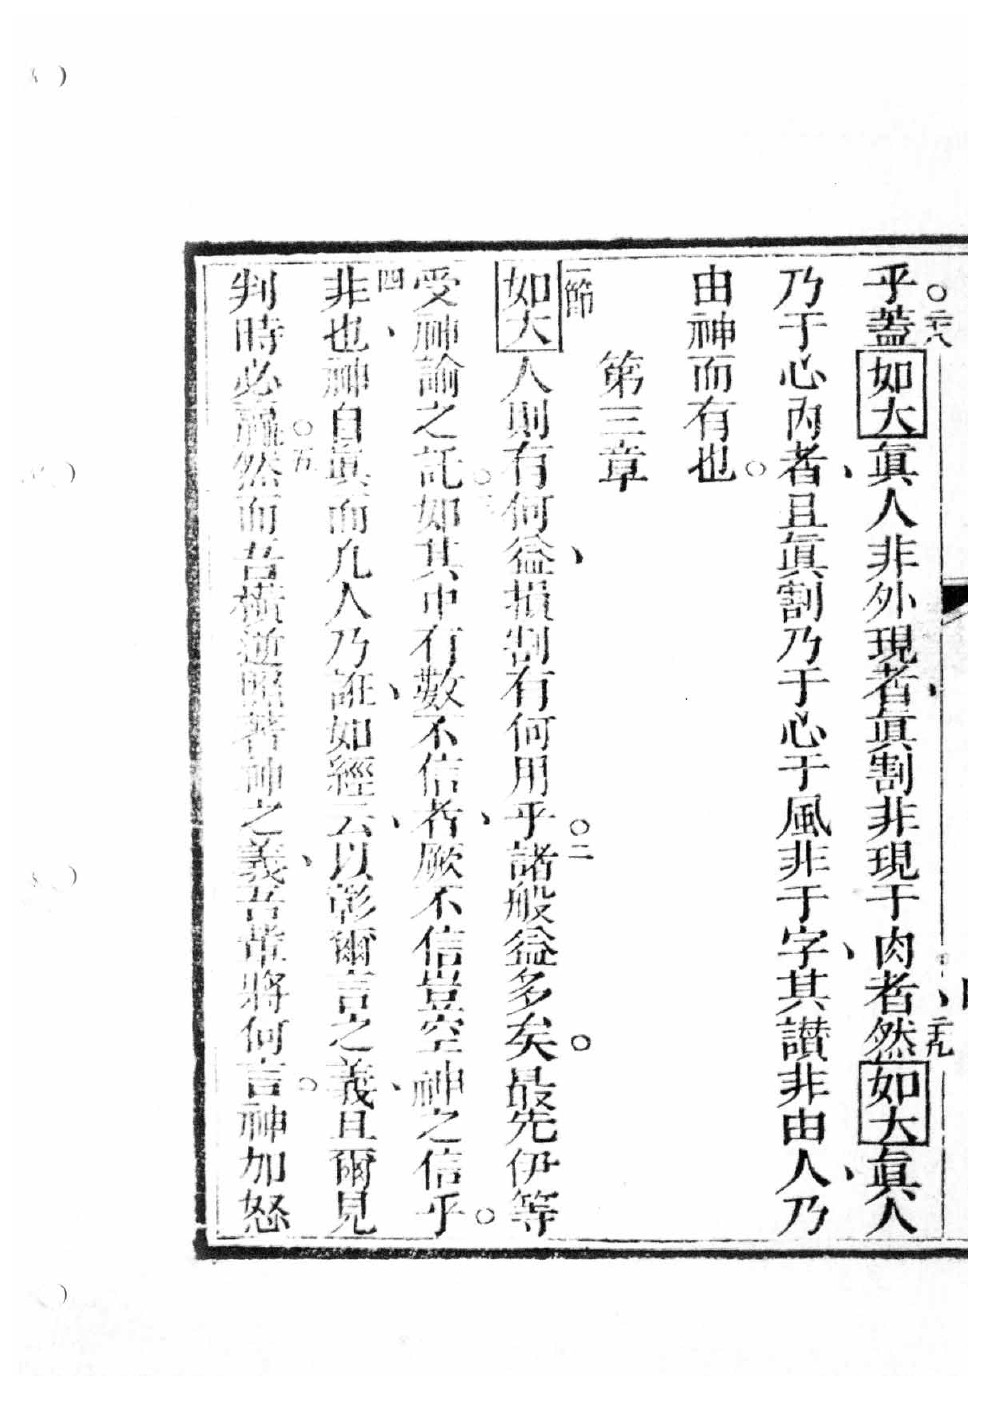 乎○二十八蓋如大眞人非外現者眞割非現于肉者然二十九如大眞人
乃于心內者且眞割乃于心于風非于字其讃非由人乃
由神而有也○
第三章
一節如大人則有何益損割有何用乎○二諸般益多矣○最先伊等
受神諭之託○三如其中有數不信者厥不信豈空神之信乎○
四非也神自眞而凡人乃誑如經云以彰爾言之義且爾見
判時必贏○五然而吾橫逆照著神之義吾輩將何言○神加怒